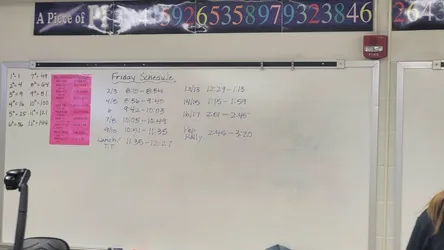 A Piece of
592653589793238 46
264
Friday Schedule
1²=1 7²=49
2²=4 8²=64
3²=9 9²=81
4²=16 10²=100
5²=25 11²=121
6²=36 12²=144
2/3 8:10-8:54
4/5 8:56-9:40
6 9:42-10:03
7/8 10:05-10:49
9/10 10:51-11:35
Lunch/ 11:35-12:27
12/13 12:29-1:13
14/15 1:15-1:59
16/17 2:01-2:45
Pep
Rally 2:45-3:20